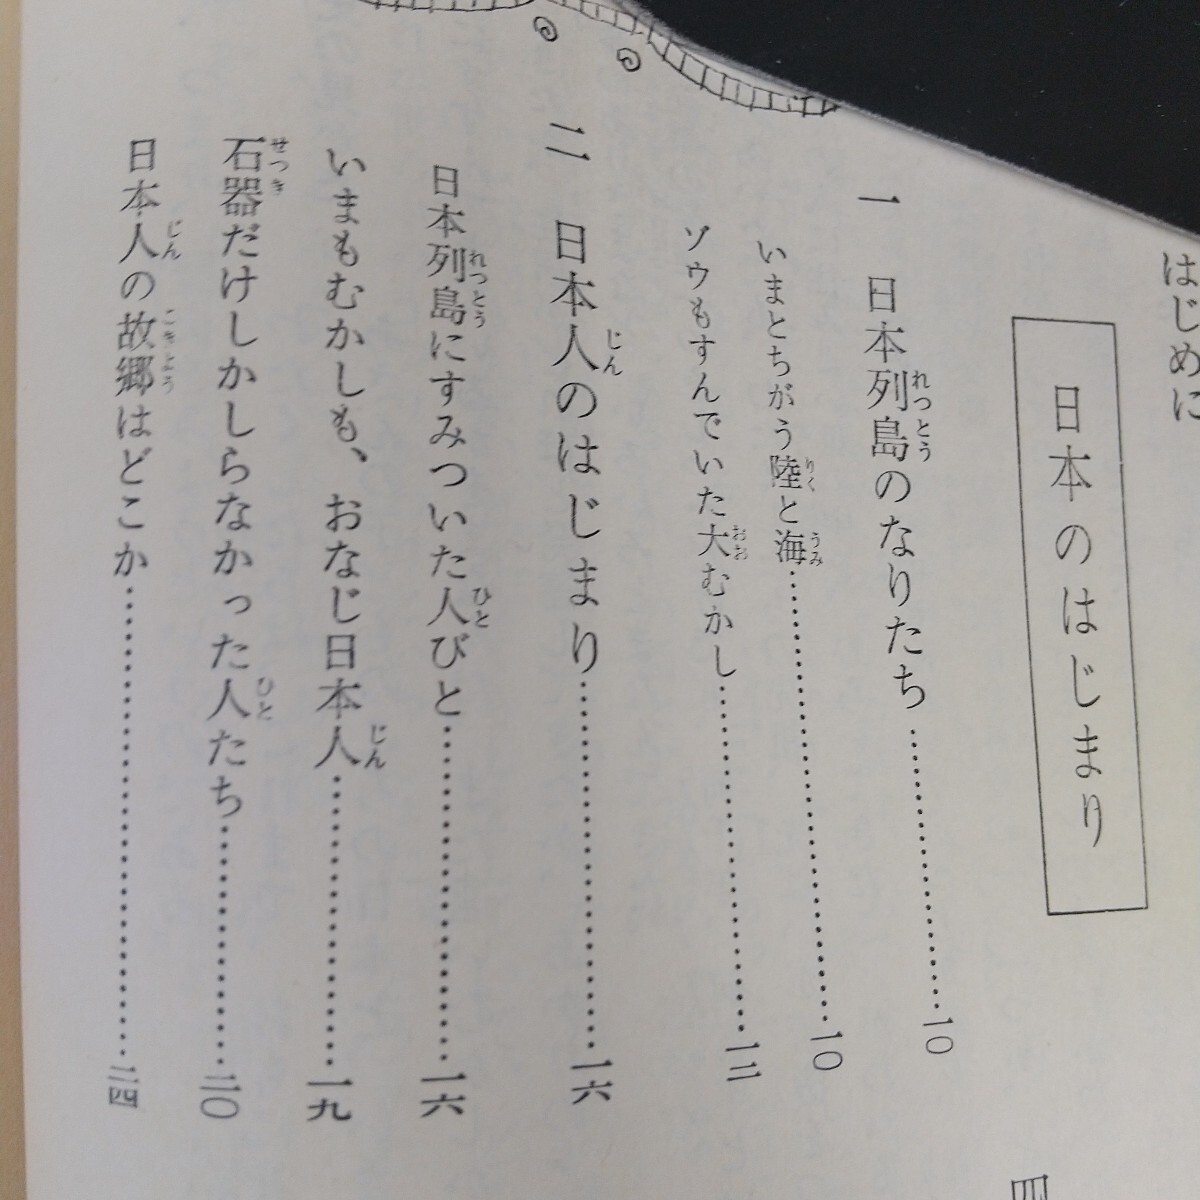 はじめに
日本のはじまり
一 日本列島のなりたち…………一〇
いまとちがう陸と海…………一〇
ゾウもすんでいた大むかし…………一二
二 日本人のはじまり…………一六
日本列島にすみついた人びと…………一六
いまもむかしも、おなじ日本人…………一九
石器だけしかしらなかった人たち…………二〇
日本人の故郷はどこか…………二四
四